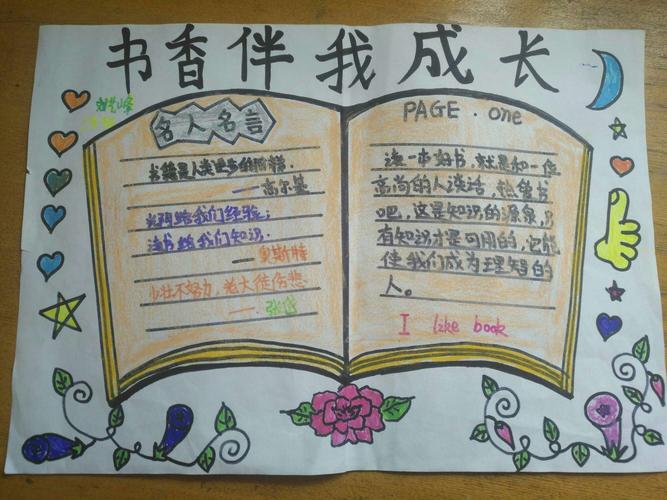 书香伴我成长
名人名言
书籍是人类进步的阶梯.
——高尔基
我们经验;
读书给我们知识.
——奥斯特
少壮不努力,老大徒伤悲
——张佳
PAGE . one
读一本好书,就是和一位
高尚的人谈话,热爱书
吧,这是知识的源泉,只
有知识才是可用的,它能
使我们成为理智的
人。
I like book